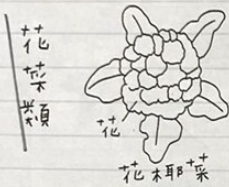 花菜類
花
花椰菜